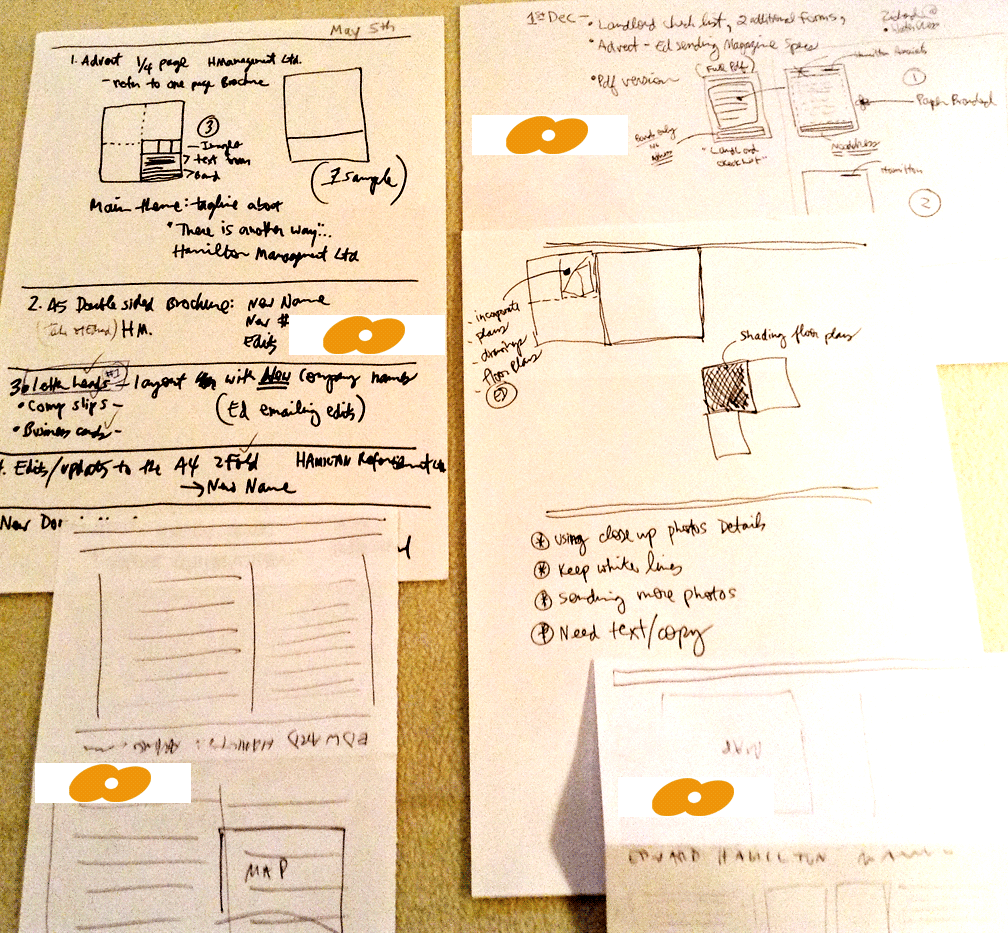 May 5th
1. Advert 1/4 page HManagement Ltd.
- refer to one page Brochure
3
- Images
> text
> Band
(1 sample)
Main theme: tagline about
"There is another way"...
Hamilton Managment Ltd
2. A5 Double sided Brochure: New Name
HM. New #
Edits
3. Letter heads - layout with New Company names
#1
• Comp slips -
(Ed emailing edits)
• Business cards -
4. Edits/updates to the A4 2 Fold HAMILTON
→ New Name
New
EDWARD HAMILTON
MAP
1st Dec - • Landlord check list, 2 additional forms,
• Advert - Ed sending Magazine Specs
• Pdf version
(Full Pdf)
Hamilton
1
Paper Branded
"Landlord
checklist"
Hamilton
2
- incorporate
plans
- drawings
- floor plans
ED
Shading floor plans
* Using close up photos Details
* Keep white lines
* Sending more photos
* Need text/copy
MAP
EDWARD HAMILTON